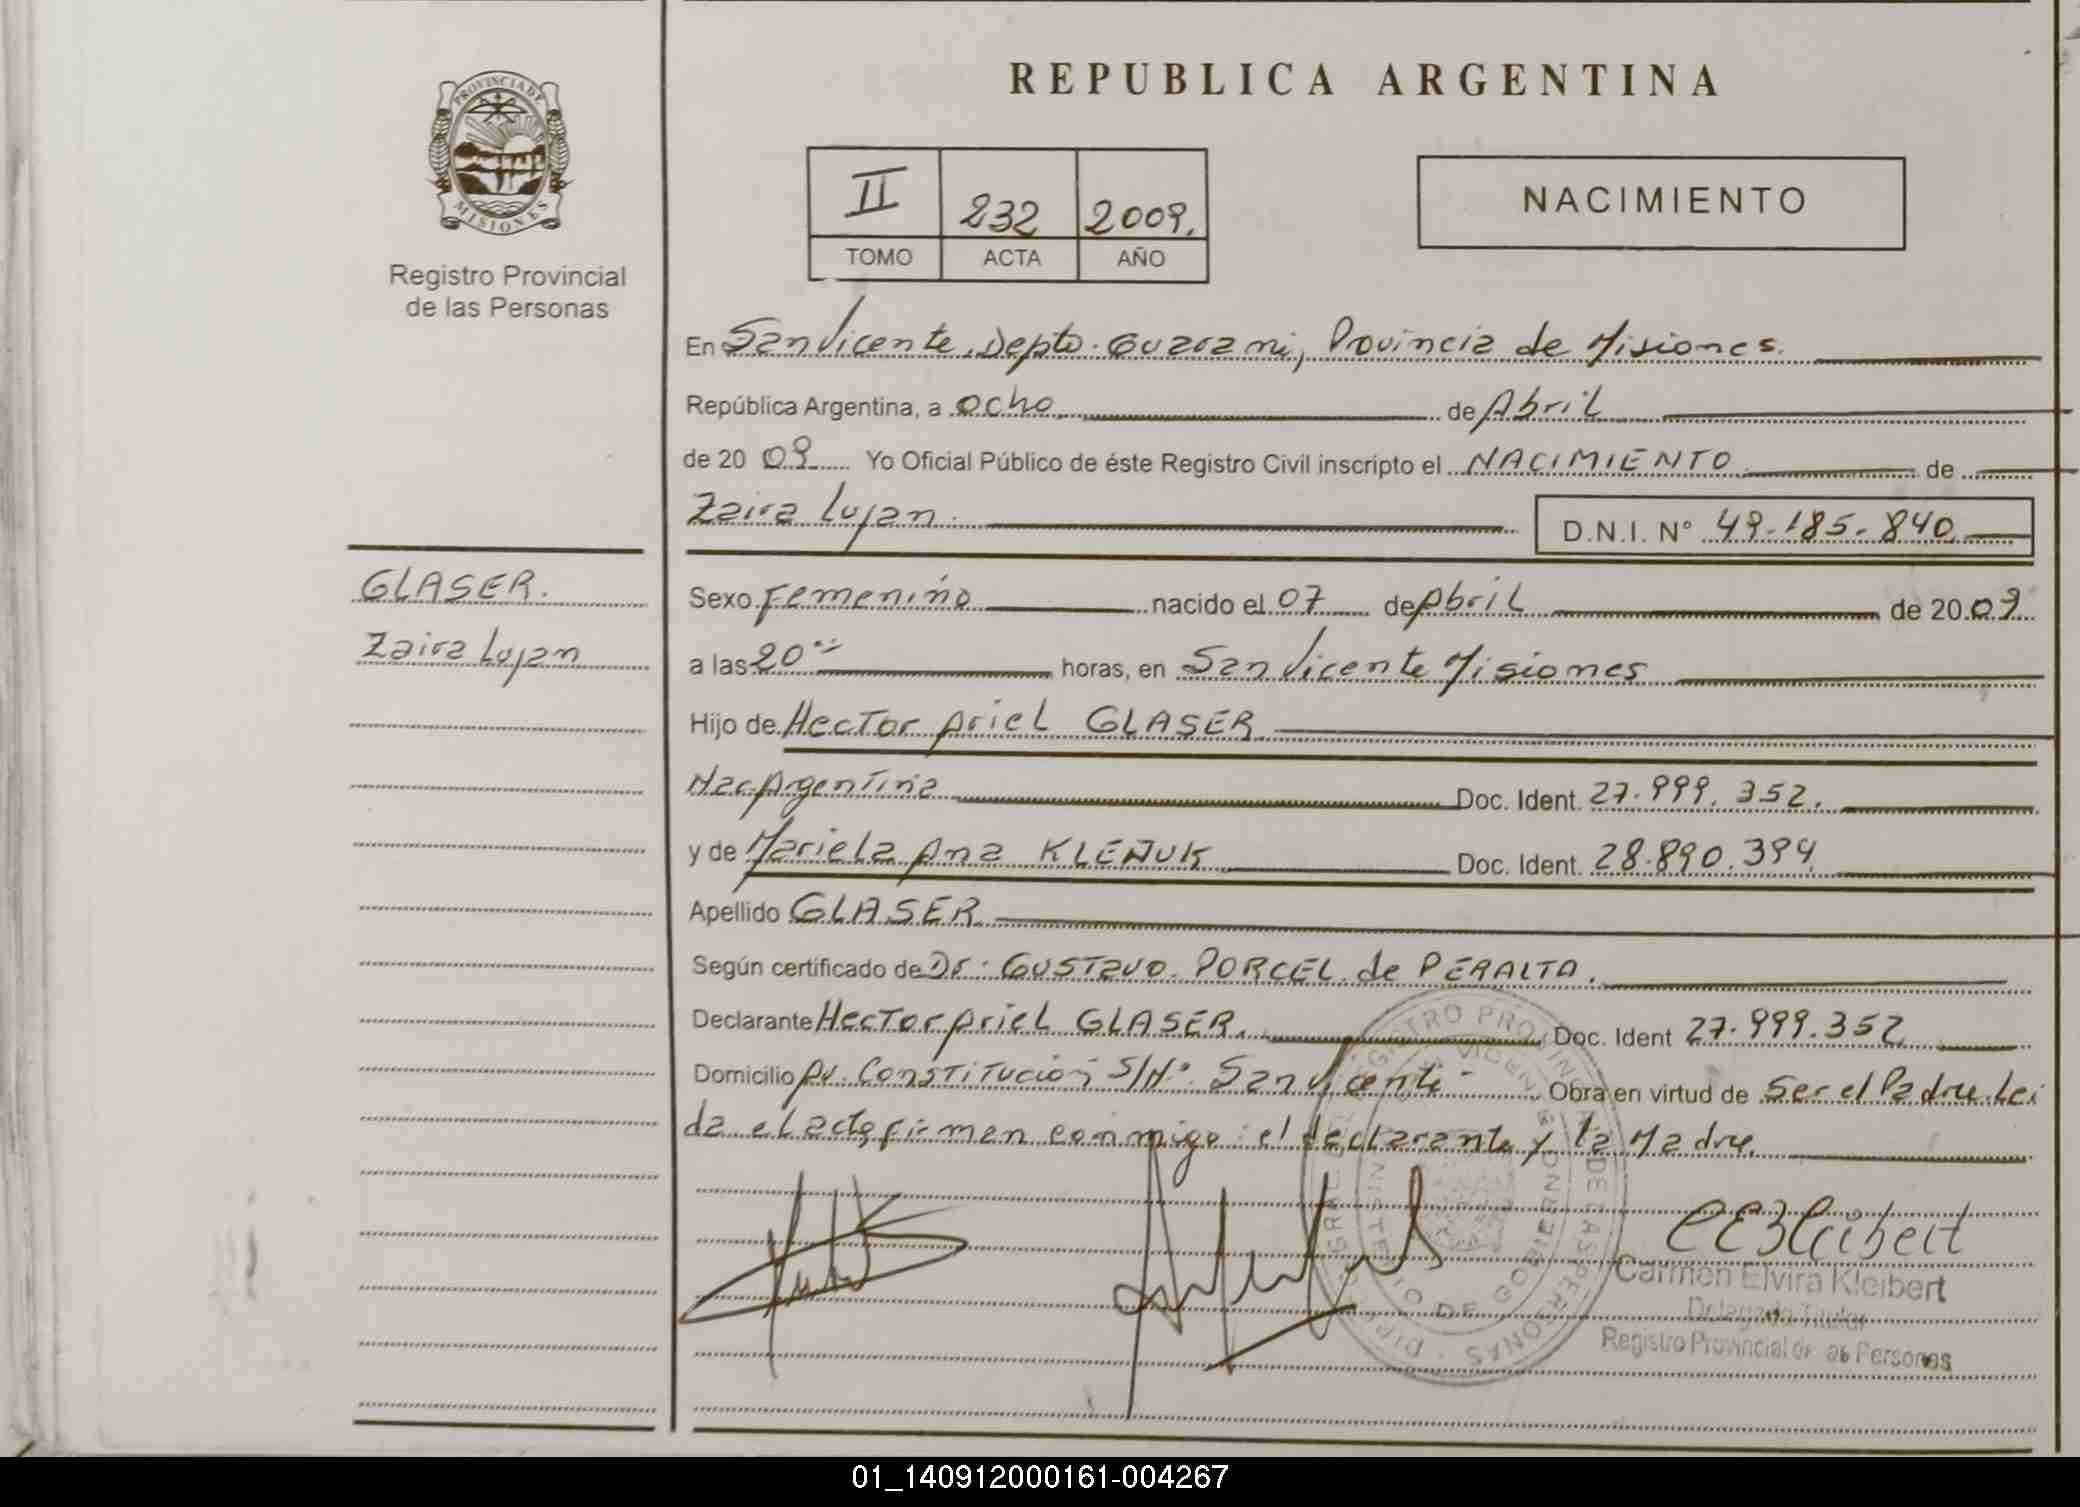 PROVINCIA DE
MISIONES
Registro Provincial
de las Personas
GLASER.
Zaira Lujan
REPUBLICA ARGENTINA
II 232 2009.
TOMO ACTA AÑO
NACIMIENTO
En San Vicente, Depto. Guarani, Provincia de Misiones.
República Argentina, a ocho de Abril
de 20 09 Yo Oficial Público de éste Registro Civil inscripto el NACIMIENTO de
Zaira Lujan. D.N.I. N° 49.185.840
Sexo Femenino nacido el 07 de Abril de 20 09
a las 20 horas, en San Vicente Misiones
Hijo de Hector Ariel GLASER
Nac Argentina Doc. Ident. 27.999.352.
y de Mariela Ana KLEÑUK Doc. Ident. 28.890.394
Apellido GLASER
Según certificado de Dr. GUSTavo PORCEL de PERALTA.
Declarante Hector Ariel GLASER. Doc. Ident 27.999.352
Domicilio Av. Constitución S/Nº San Vicente Obra en virtud de Ser el Padre. Lei
da el acta firman conmigo: el declarante y la Madre.
REGISTRO PROVINCIAL DE LAS PERSONAS
Carmen Elvira Kleibert
Delegado Titular
Registro Provincial de las Personas
01_140912000161-004267